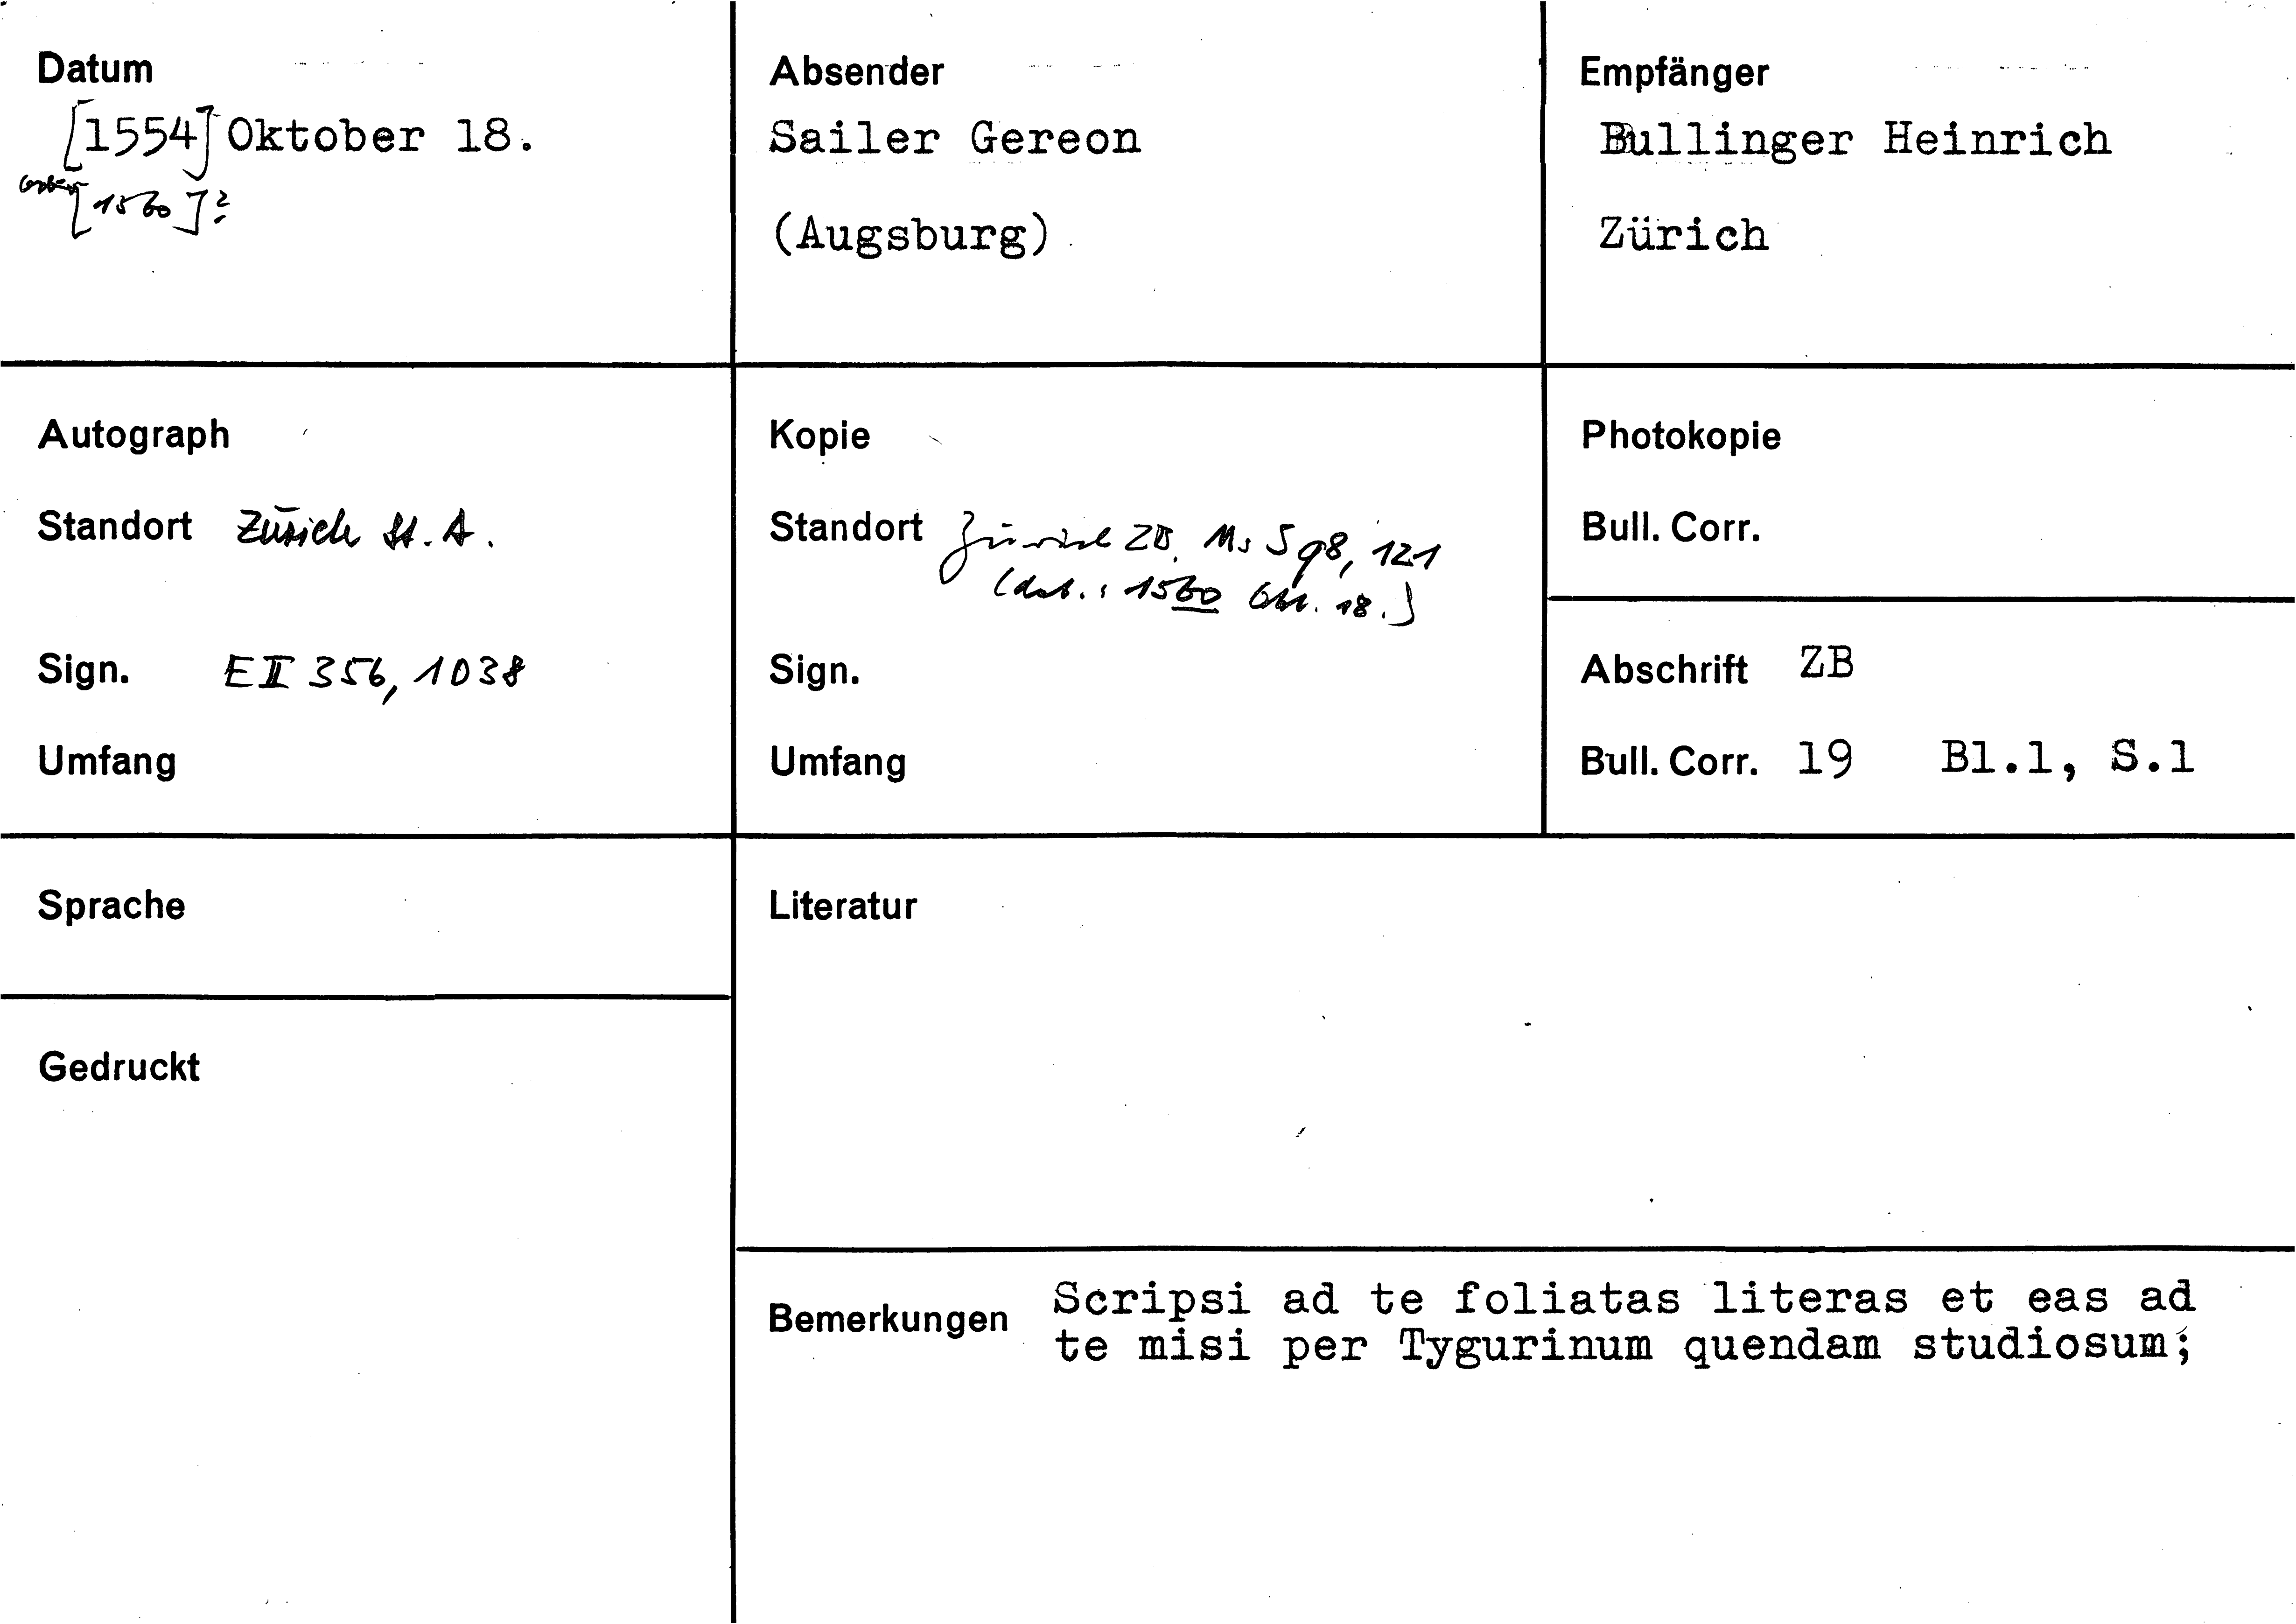 Datum
[1554] Oktober 18.
[1560]?
Absender
Sailer Gereon
(Augsburg)
Empfänger
Bullinger Heinrich
Zürich
Autograph
Standort Zürich St. A.
Sign. E II 356, 1038
Umfang
Kopie
Standort Zürich ZB. Ms S 98, 121
(dat.: 1560 Okt. 18.)
Sign.
Umfang
Photokopie
Bull. Corr.
Abschrift ZB
Bull. Corr. 19 Bl.1, S.1
Sprache
Gedruckt
Literatur
Bemerkungen Scripsi ad te foliatas literas et eas ad
te misi per Tygurinum quendam studiosum;